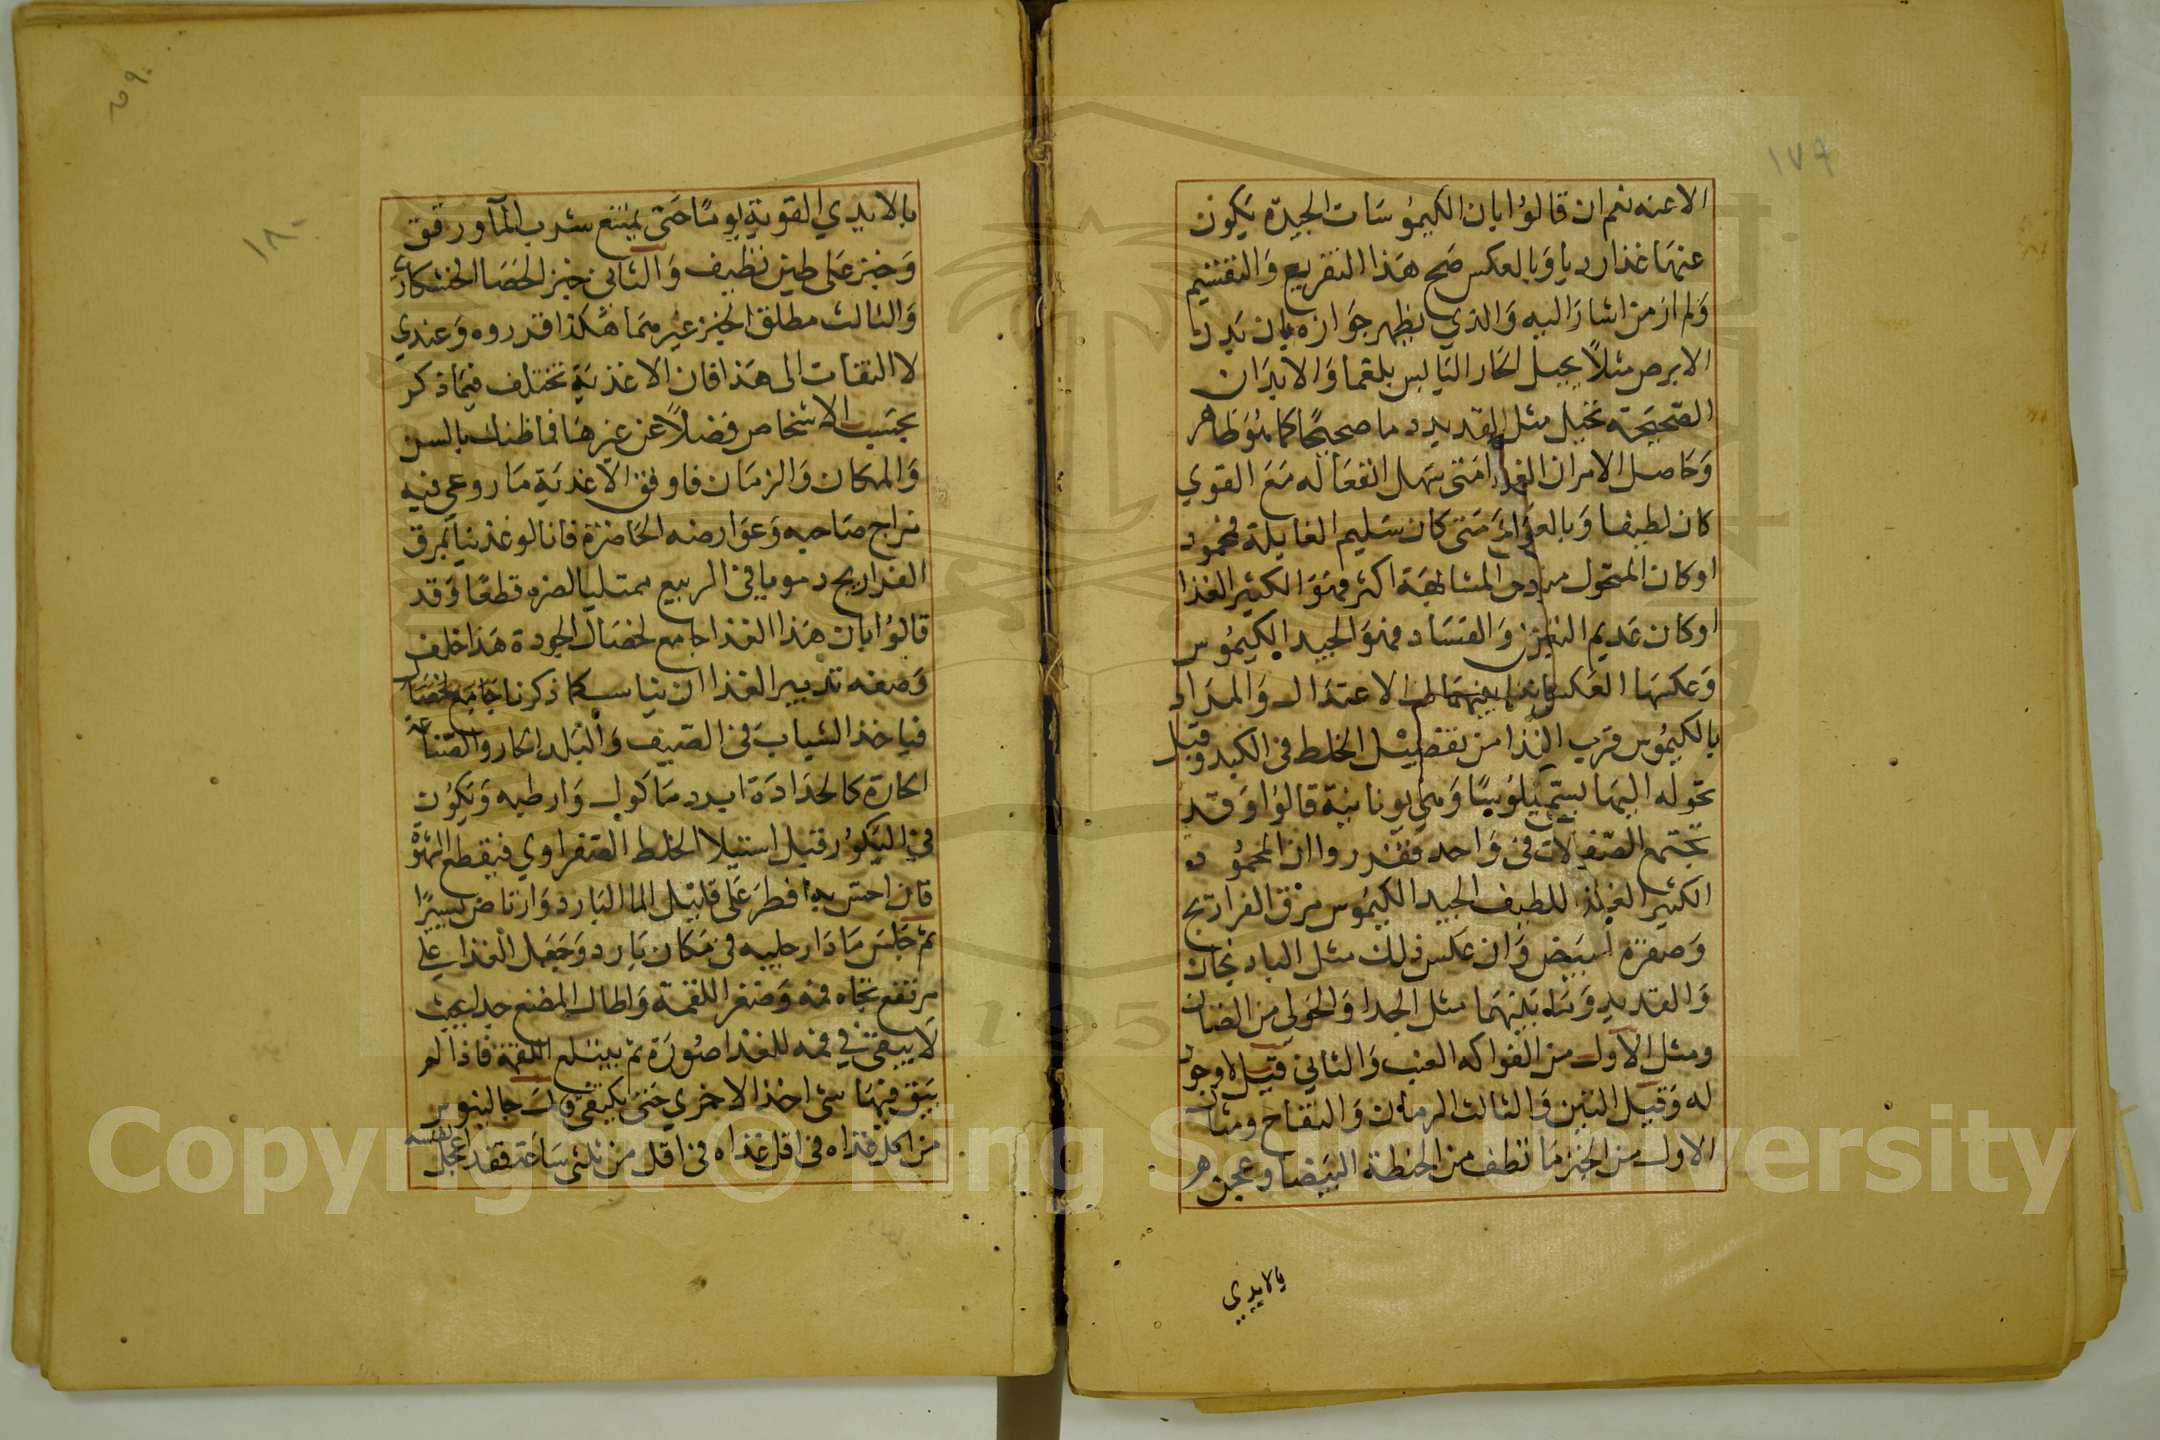 ١٧٩
الاعنه نعم ان قالوا بان الكيموسات الجيدة يكون
عنها غذا رديا وبالعكس صح هذا التفريع والتقسيم
ولم ار من اشار اليه والذي يظهر جوازه بان بدن
الابرص مثلاً يحيل الحار اليابس بلغما والابدان
الصحيحة تحيل مثل القديد دما صحيحًا كما هو ظاهر
وحاصل الامر ان الغذا متى سهل انفعاله مع القوي
كان لطيفا وبالعكس متى كان سليم الغايلة فمحمود
او كان المتحول من دون المشابهة اكثر فهو الكثير الغذا
او كان عديم النفن والفساد فهو الجيد الكيموس
وعكسها العكس وما بينهما الاعتدال والمراد
بالكيموس قرب الغذا من تفصيل الخلط في الكبد وقبل
تحوله اليها يسمى كيلوسًا وهي يونانية قالوا وقد
تجتمع الصفات في واحد فقدروا ان المحمود
الكثير الغذا اللطيف الجيد الكيموس مرق الفراريج
وصفرة البيض وان عكس ذلك مثل الباذنجان
والقديد وما بينهما مثل الجدا والحولي من الضان
ومثل الاول من الفواكه العنب والثاني قيل لا وجود
له وقيل التين والثالث الرمان والتفاح ومثال
الاول من الخبز ما نظف من الحنطة البيضا وعجن
بالايدي
١٨٠
بالايدي القوية يومًا حتى يمتنع شرب المآ ورقق
وخبز على طين نظيف والثاني خبز الحصا الخشكار
والثالث مطلق الخبز غيرهما هكذا قدروه وعندي
لا التفات الى هذا فان الاغذية تختلف فيما ذكر
بحسب الاشخاص فضلاً عن غيرها فما ظنك بالسن
والمكان والزمان فاوفق الاغذية ما روعي فيه
مزاج صاحبه وعوارضه الحاضرة فانا لو غذينا بمرق
الفراريج دمويا في الربيع ممتليا لضره قطعًا وقد
قالوا بان هذا الغذا جامع لخصال الجودة هذا خلف
وصفة تدبير الغذا ان يناسب كما ذكرنا جامع لخصال
فياخذ الشباب في الصيف والبلد الحار والصناعة
الحارة كالحدادة ابرد ماكول وارطبه ويكون
في البكور قبل استيلا الخلط الصفراوي فيقطع الشهوة
فان احس به افطر على قليل الما البارد وارتاض يسيرًا
ثم جلس مادا رجليه في مكان بارد وجعل الغذا على
مرتفع تجاه فمه وصغر اللقمة واطال المضغ جدا بحيث
لا يبقى في فمه للغذا صورة ثم يبتلع اللقمة فاذا لم
يبق فيها شي اخذ الاخري حتى يكتفي وقال جالينوس
من اكل غذاه في اقل من ثلثي ساعة فقد اعجل نفسه